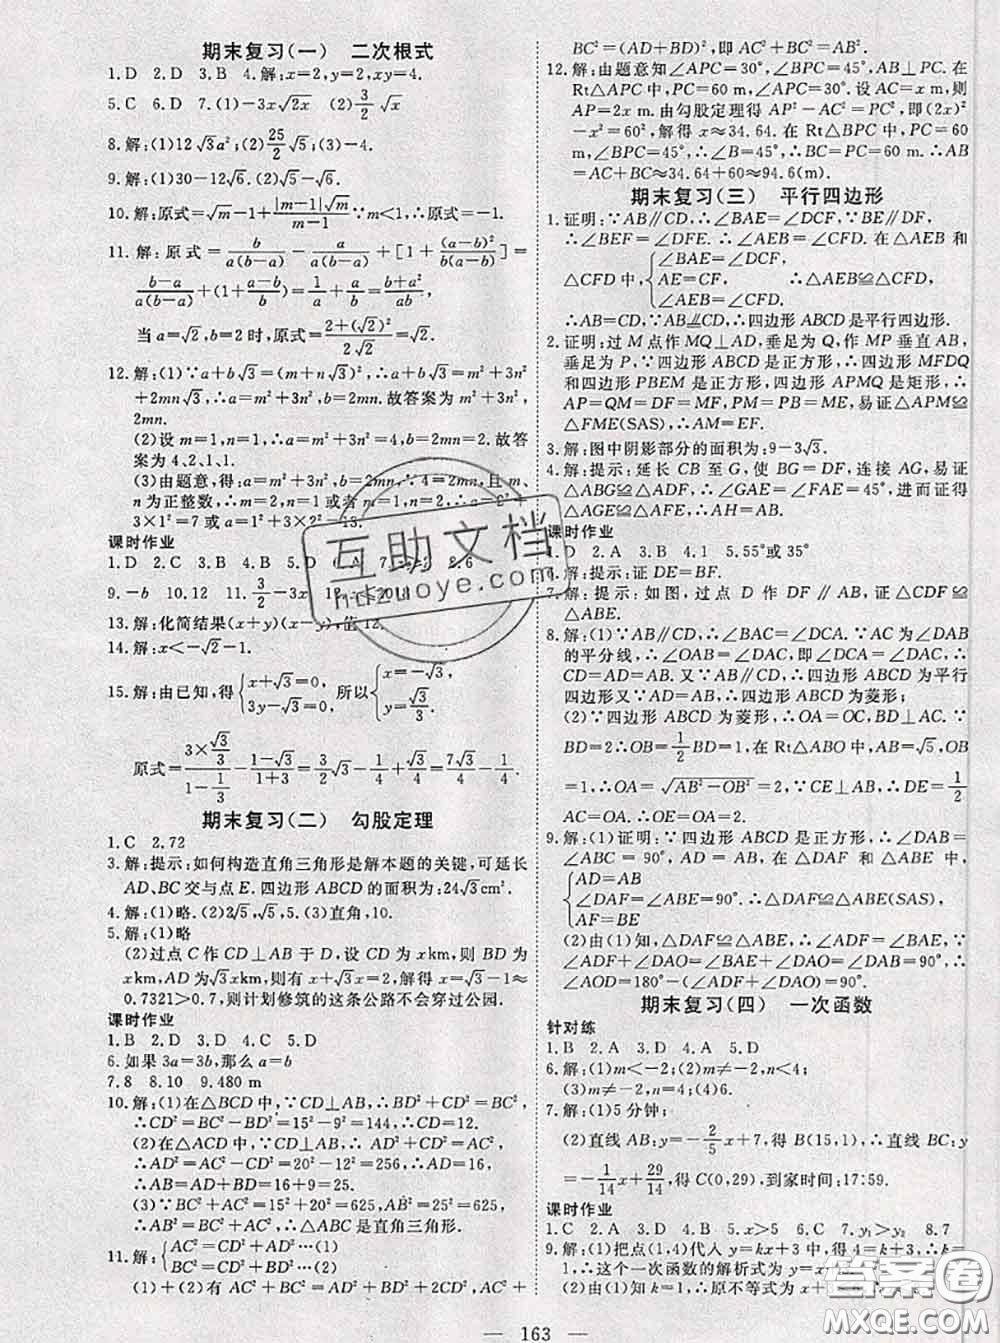 期末复习(一) 二次根式
1.D 2.D 3.B 4.解:x=2,y=2,xy=4.
5.C 6.D 7.(1)-3x√2x (2)3/2 √x
8.解:(1)12√3a²;(2)25/2√5;(3)-4.
9.解:(1)30-12√6. (2)
10.解:原式=√m-1+|m-1|√m/m-1 ∵m<1,∴原式=-1.
11.解:原式=b/a(b-a)-a/a(b-a)+[1+(a-b)²/b(a-b)]=
b-a/a(b-a)+(1+a-b/b)=1/a+a/b=b+a²/ab
当a=√2,b=2时,原式=2+(√2)²/2√2=√2.
12.解:(1)∵a+b√3=(m+n√3)²,∴a+b√3=m²+3n²
+2mn√3,∴a=m²+3n²,b=2mn.故答案为m²+3n²,
2mn.
(2)设m=1,n=1,∴a=m²+3n²=4,b=2mn=2.故答
案为4、2、1、1.
(3)由题意,得:a=m²+3n²,b=2mn∵4=2mn,且m、
n为正整数,∴m=2,n=1或者m=1,n=2,∴a=2²+
3×1²=7或a=1²+3×2²=13.
课时作业
1.D 2.C 3.B 4.D 5. 6.A 7. 8.6
9.-b 10.12 11.3/2-3x 12.
13.解:化简结果(x+y)(x-y),值12.
14.解:x<-√2-1.
15.解:由已知,得{x+√3=0, 3y-√3=0, 所以{x=-√3, y=√3/3.
原式=3×√3/3/1-1/3-1-√3/1+3=3/2√3-1/4+√3/4=7√3/4-1/4
期末复习(二) 勾股定理
1.C 2.72
3.解:提示:如何构造直角三角形是解本题的关键,可延长
AD、BC交与点E.四边形ABCD的面积为:24√3cm².
4.解:(1)略.(2)2√5,√5,5.(3)直角,10.
5.解:(1)略
(2)过点C作CD⊥AB于D,设CD为xkm,则BD为
xkm,AD为√3xkm,则有x+√3x=2,解得x=√3-1≈
0.7321>0.7,则计划修筑的这条公路不会穿过公园.
课时作业
1.B 2.D 3.D 4.C 5.D
6.如果3a=3b,那么a=b
7.8 8.10 9.480 m
10.解:(1)在△BCD中,∵CD⊥AB,∴BD²+CD²=BC²,
∴CD²=BC²-BD²=15²-9²=144,∴CD=12.
(2)在△ACD中,∵CD⊥AB,∴AD²+CD²=AC²,
∴AD²=AC²-CD²=20²-12²=256,∴AD=16,
∴AB=AD+BD=16+9=25.
(3)∵BC²+AC²=15²+20²=625,AB²=25²=625,
∴AB²=BC²+AC²,∴△ABC是直角三角形.
11.解:{AC²=CD²+AD²…(1) BC²=CD²+BD²…(2)
(1)+(2)有AC²+BC²=2CD²+AD²+BD²,AC²+
BC²=(AD+BD)²,即AC²+BC²=AB².
12.解:由题意知∠APC=30°,∠BPC=45°,AB⊥PC.在
Rt△APC中,PC=60 m,∠APC=30°.设AC=x m,则
AP=2x m.由勾股定理得AP²-AC²=PC²,即(2x)²
-x²=60²,解得x≈34.64.在Rt△BPC中,PC=60
m,∠BPC=45°,∴∠B=45°,∴BC=PC=60 m.∴AB
=AC+BC≈34.64+60≈94.6(m).
期末复习(三) 平行四边形
1.证明:∵AB∥CD,∴∠BAE=∠DCF.∵BE∥DF,
∴∠BEF=∠DFE.∴∠AEB=∠CFD.在△AEB和
△CFD中,{∠BAE=∠DCF, AE=CF, ∠AEB=∠CFD. ∴△AEB≌△CFD.
∴AB=CD,∵AB∥CD.∴四边形ABCD是平行四边形.
2.证明:过M点作MQ⊥AD,垂足为Q,作MP垂直AB,
垂足为P,∵四边形ABCD是正方形,∴四边形MFDQ
和四边形PBEM是正方形,四边形APMQ是矩形,
∴AP=QM=DF=MF,PM=PB=ME,∴△APM≌
△FME(SAS),∴AM=EF.
3.解:图中阴影部分的面积为:9-3√3.
4.解:提示:延长CB至G,使BG=DF,连接AG,易证
△ABG≌△ADF,∴∠GAE=∠FAE=45°,进而证得
△AGE≌△AFE,∴AH=AB.
课时作业
1.D 2.A 3.B 4.1 5.55°或35°
6.解:提示:证DE=BF.
7.解:提示:如图,过点D作DF∥AB,证△CDF≌
△ABE.
8.解:(1)∵AB∥CD,∴∠BAC=∠DCA.∵AC为∠DAB
的平分线,∴∠OAB=∠DAC,即∠DCA=∠DAC,∴
CD=AD=AB.又∵AB∥CD,∴四边形ABCD是平行
四边形又∵AD=AB,∴四边形ABCD为菱形;
(2)∵四边形ABCD为菱形,∴OA=OC,BD⊥AC.∵
BD=2∴OB=1/2BD=1,在Rt△ABO中,AB=√5,OB
=1,∴OA=√AB²-OB²=2,∵CE⊥AB,∴OE=1/2
AC.∴OE=OA=2.
9.解:(1)证明:∵四边形ABCD是正方形,∴∠DAB=
∠ABC=90°,AD=AB,在△DAF和△ABE中,
{AD=AB ∠DAF=∠ABE=90°.∴△DAF≌△ABE(SAS), AF=BE
(2)由(1)知,△DAF≌△ABE,∴∠ADF=∠BAE,∵
∠ADF+∠DAO=∠BAE+∠DAO=∠DAB=90°,
∴∠AOD=180°-(∠ADF+∠DAO)=90°.
期末复习(四) 一次函数
针对练
1.B 2.A 3.D 4.A 5.D
6.解:(1)m<-2;(2)m≠-2,n<4;
(3)m≠-2,n=4;(4)6.
7.解:(1)5分钟;
(2)直线AB:y=-2/5x+7,得B(15,1),∴直线BC:y
=-1/14x+29/14,得C(0,29),到家时间:17:59.
课时作业
1.C 2.A 3.D 4.B 5.x>5 6.C 7.y₁>y₂ 8.7
9.解:(1)把点(1,4)代入y=kx+3中,得4=k+3,∴k=
1,∴这个一次函数的解析式为y=x+3.
(2)由(1)知k=1,∴原不等式可化为
互助文档
hdzuoye.com
答案圈
MXQE.COM
163